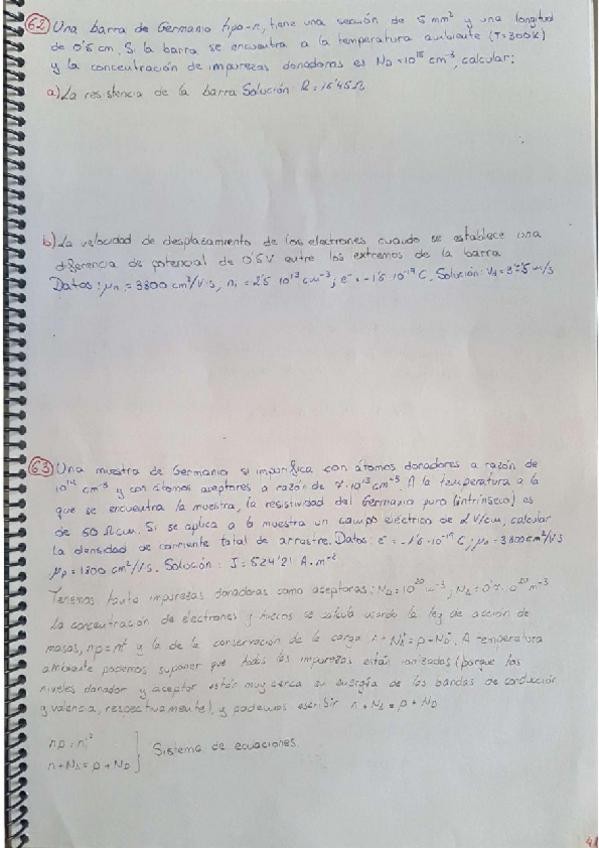 62 Una barra de Germanio tipo-n, tiene una sección de 5 mm² y una longitud
de 0'5 cm. Si la barra se encuentra a la temperatura ambiente (T=300K)
y la concentración de impurezas donadoras es N_D = 10^15 cm^-3, calcular:
a) La resistencia de la barra Solución: R = 16'45Ω
b) La velocidad de desplazamiento de los electrones cuando se establece una
diferencia de potencial de 0'5V entre los extremos de la barra
Datos: μn = 3800 cm²/V·s, ni = 2'5·10^13 cm^-3, e^- = -1'6·10^-19 C. Solución: Vd = m/s
63 Una muestra de Germanio si impurifica con átomos donadores a razón de
10^14 cm^-3 y con átomos aceptores a razón de 7·10^13 cm^-3 A la temperatura a la
que se encuentra la muestra, la resistividad del Germanio puro (intrínseco) es
de 60 Ω·cm. Si se aplica a la muestra un campo eléctrico de 2 V/cm, calcular
la densidad de corriente total de arrastre. Datos: e^- = -1'6·10^-19 C; μn = 3800 cm²/V·s
μp = 1800 cm²/V·s. Solución: J = 524'21 A·m^-2
Tenemos tanto impurezas donadoras como aceptoras: N_D = 10^20 m^-3; N_A = 0'7·10^20 m^-3
La concentración de electrones y huecos se calcula usando la ley de acción de
masas, np = ni² y la de la conservación de la carga n + N_A^- = p + N_D^+. A temperatura
ambiente podemos suponer que todas las impurezas están ionizadas (porque los
niveles donador y aceptor están muy cerca su energía de las bandas de conducción
y valencia, respectivamente), y podemos escribir n + N_A = p + N_D
np = ni²
n + N_A = p + N_D } Sistema de ecuaciones.